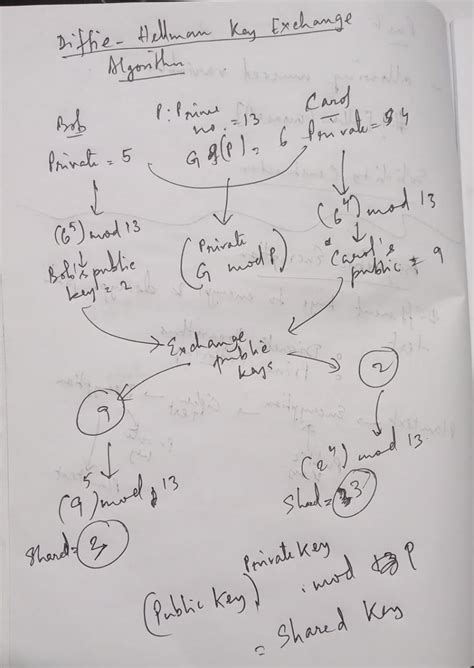 Diffie-Hellman Key Exchange
Algorithm
Bob
Private = 5
P: Prime
no. = 13
G (P) = 6
Carol
Private = 4
(6^5) mod 13
Bob's public
key = 2
(Private
G mod P)
(6^4) mod 13
Carol's
public = 9
Exchange
public
keys
9
2
(9^5) mod 13
Shared = 3
(2^4) mod 13
Shared = 3
(Public Key)^Private Key mod P
= Shared Key